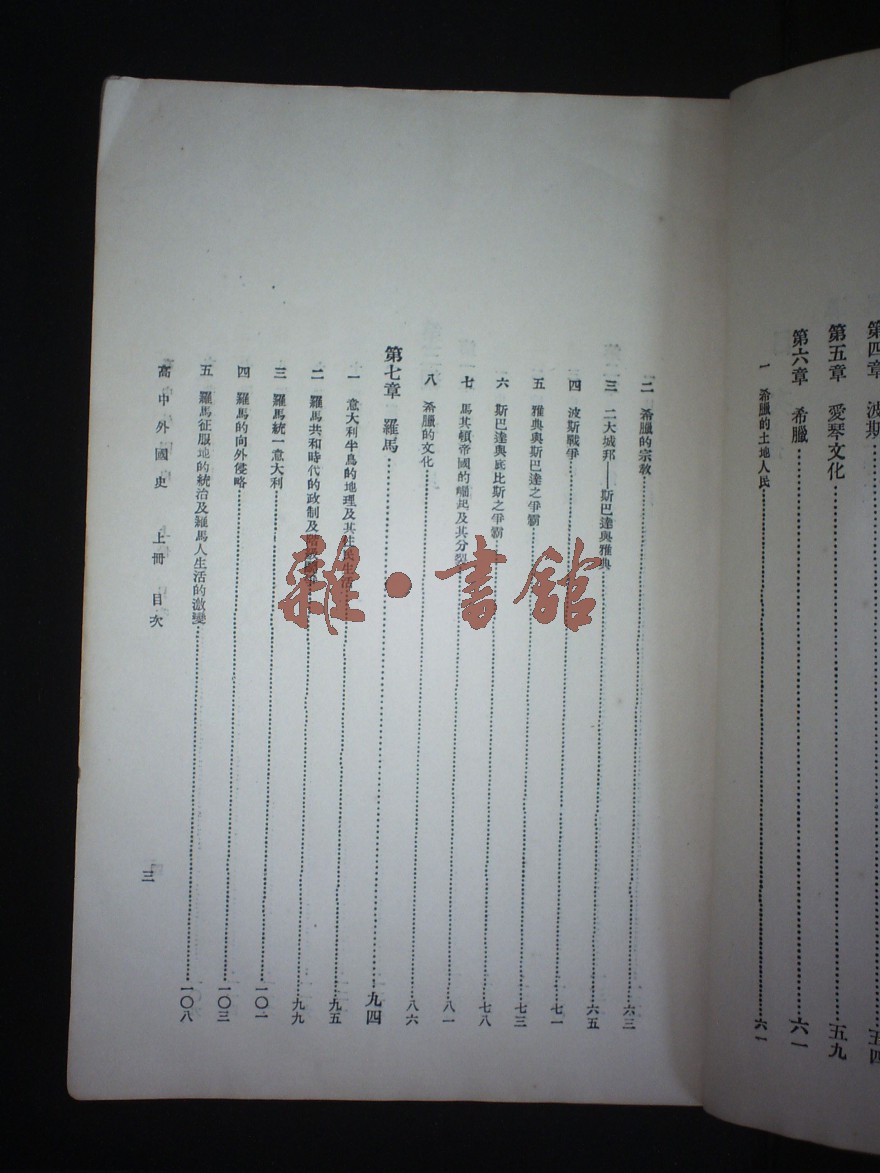 第四章 波斯……五四
第五章 愛琴文化……五九
第六章 希臘……六一
一 希臘的土地人民……六一
二 希臘的宗教……六三
三 二大城邦——斯巴達與雅典……六五
四 波斯戰爭……七一
五 雅典與斯巴達之爭霸……七三
六 斯巴達與底比斯之爭霸……七八
七 馬其頓帝國的崛起及其分裂……八一
八 希臘的文化……八六
第七章 羅馬……九四
一 意大利半島的地理及其住民生活……九五
二 羅馬共和時代的政制及階級鬭爭……九九
三 羅馬統一意大利……一〇一
四 羅馬的向外侵略……一〇三
五 羅馬征服地的統治及羅馬人生活的激變……一〇八
高中外國史 上冊 目次
三
雜·書館